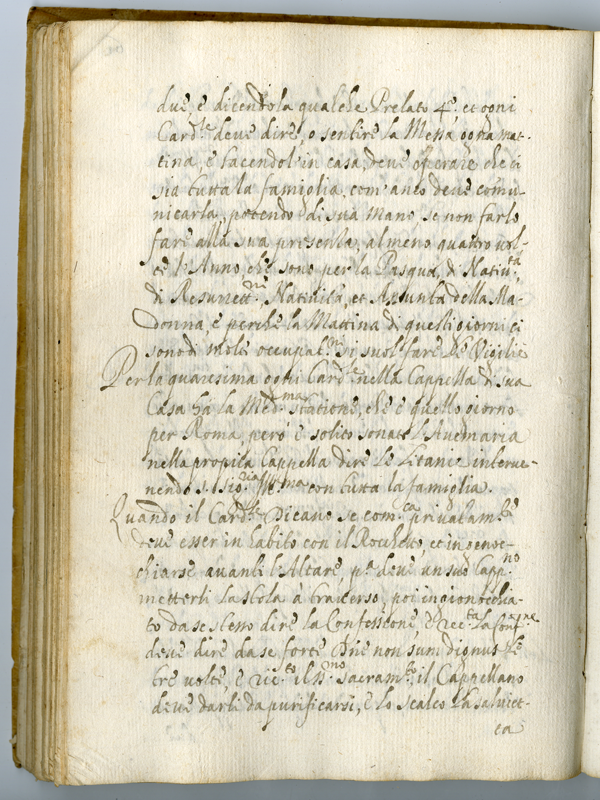 due, e dicendola qualche Prelato 4.e et ogni
Card.le deue dire, o sentire la Messa ogni mat-
tina, e facendol'in casa deue operare che ci
sia tutta la famiglia, com'anco deue comu-
nicarla, potendo di sua mano, se non farlo
fare alla sua presenza, almeno quattro uol-
te l'Anno, che sono per la Pasqua, di Natiu.tà
di Resurrett.ni, Natiuità, et Assunta della Ma-
donna, e perche la Mattina di quelli giorni ci
sono di molte occupat.ni si suol fare Le Vigilie
Per la quaresima ogni Card.le nella Cappella di sua
Casa hà la Med.ma statione, che è quello giorno
per Roma, però è solito sonate l'Auemaria
nella propria Cappella dire Le Litanie interue-
nendo S. Sig.ria Ill.ma con tutta la famiglia.
Quando il Card.le Dicano se com.ca priuatam.te
deue esser in habito con il Rocchetto, et inginoc-
chiarse auanti l'Altare, p.a deue un suo Capp.no
metterli la stola à trauerso, poi ingionocchia-
to da se stesso dire la Confessione, è rec.ta la Conf.ne
deue dire da se forte Dñe non sum dignus &e
tre uolte, è ric.to il S.mo Sacram.to, il Cappellano
deue darli da purificarsi, è lo scalco la saluiet-
ta